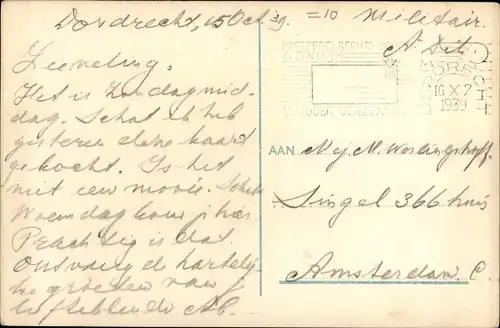 Dordrecht, 15 Oct. 39. = 10 Militair.
Lieveling.
Het is Zondagmid-
dag. Schat ik heb
gisteren deze kaart
gekocht. Is het
niet een mooie. Schat
Woensdag kom je hier
Prachtig is dat.
Ontvang de hartelij-
ke groeten van je
liefhebbende Ab.
POSTZEGEL RECHTS
16 X 7
1939
AAN
Mej M.
Singel 366 huis
Amsterdam. C.